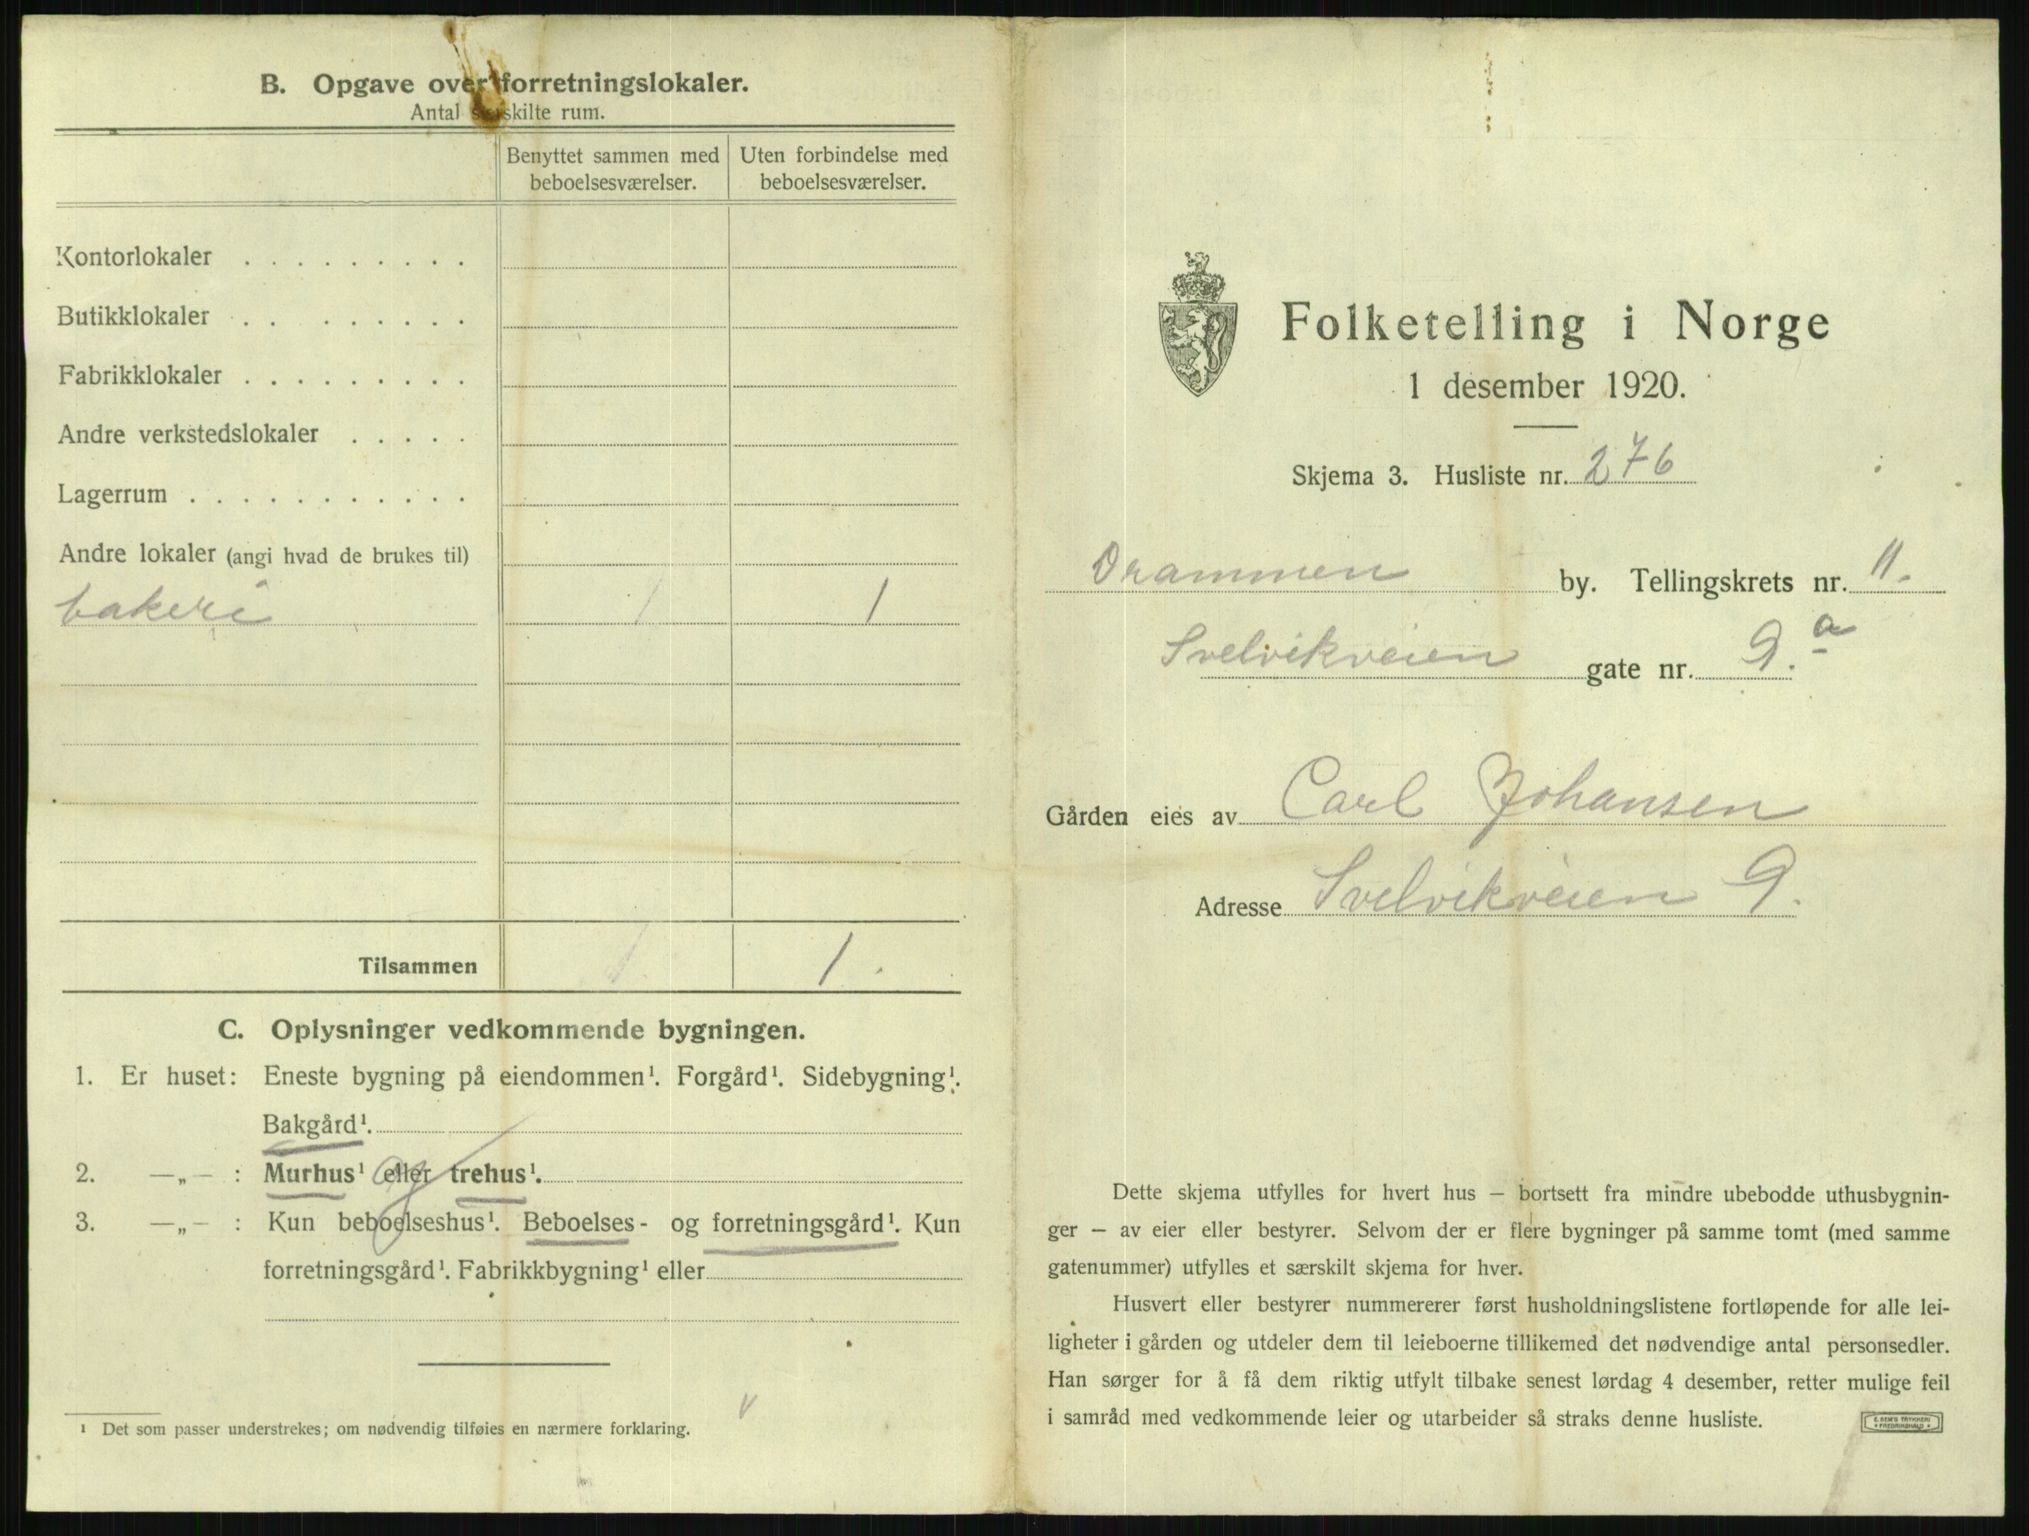 B. Opgave over forretningslokaler.
Antal særskilte rum.
Benyttet sammen med beboelsesværelser.
Uten forbindelse med beboelsesværelser.
Kontorlokaler . . . . . . . . .
Butikklokaler . . . . . . . . .
Fabrikklokaler . . . . . . . . .
Andre verkstedslokaler . . . . .
Lagerrum . . . . . . . . . . .
Andre lokaler (angi hvad de brukes til)
bakeri 1 1
Tilsammen 1 1.
C. Oplysninger vedkommende bygningen.
1. Er huset: Eneste bygning på eiendommen¹. Forgård¹. Sidebygning¹.
Bakgård¹.
2. —„— : Murhus¹ eller og trehus¹.
3. —„— : Kun beboelseshus¹. Beboelses- og forretningsgård¹. Kun
forretningsgård¹. Fabrikkbygning¹ eller
¹ Det som passer understrekes; om nødvendig tilføies en nærmere forklaring.
Folketelling i Norge
1 desember 1920.
Skjema 3. Husliste nr. 276
Drammen by. Tellingskrets nr. 11.
Svelvikveien gate nr. 9.a
Gården eies av Carl Johansen
Adresse Svelvikveien 9.
Dette skjema utfylles for hvert hus – bortsett fra mindre ubebodde uthusbygnin-
ger – av eier eller bestyrer. Selvom der er flere bygninger på samme tomt (med samme
gatenummer) utfylles et særskilt skjema for hver.
Husvert eller bestyrer nummererer først husholdningslistene fortløpende for alle lei-
ligheter i gården og utdeler dem til leieboerne tillikemed det nødvendige antal personsedler.
Han sørger for å få dem riktig utfylt tilbake senest lørdag 4 desember, retter mulige feil
i samråd med vedkommende leier og utarbeider så straks denne husliste.
E. SEM'S TRYKKERI
FREDRIKSHALD